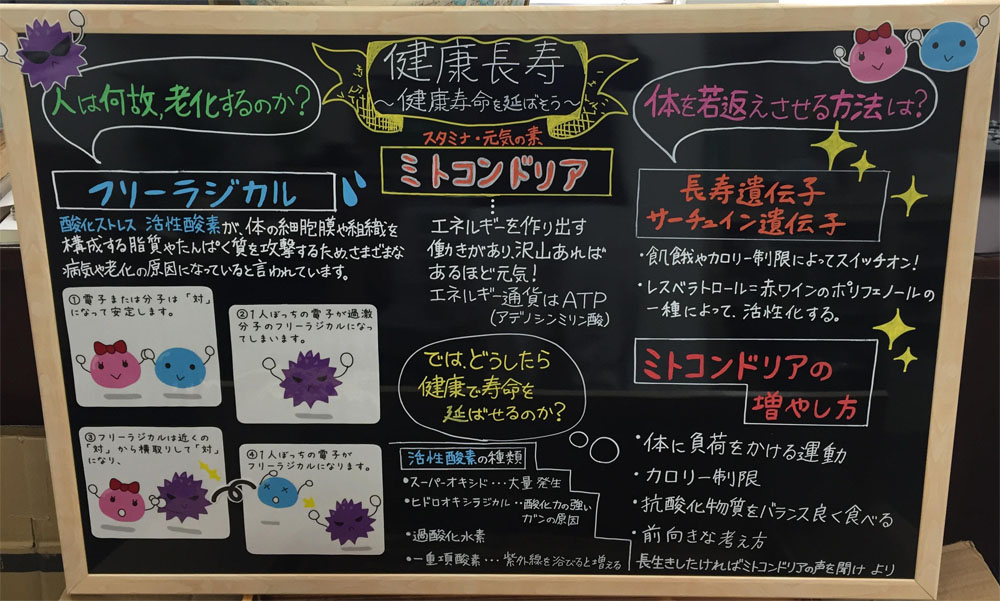 健康長寿
～健康寿命を延ばそう～
人は何故,老化するのか?
フリーラジカル
酸化ストレス 活性酸素が、体の細胞膜や組織を
構成する脂質やたんぱく質を攻撃するため、さまざまな
病気や老化の原因になっていると言われています。
①電子または分子は「対」
になって安定します。
②1人ぼっちの電子が過激
分子のフリーラジカルになっ
てしまいます。
③フリーラジカルは近くの
「対」から横取りして「対」
になり、
④1人ぼっちの電子が
フリーラジカルになります。
スタミナ・元気の素
ミトコンドリア
エネルギーを作り出す
働きがあり、沢山あれば
あるほど元気!
エネルギー通貨はATP
(アデノシンミリン酸)
では、どうしたら
健康で寿命を
延ばせるのか?
活性酸素の種類
・スーパーオキシド・・・大量発生
・ヒドロオキシラジカル・・酸化力の強い
ガンの原因
・過酸化水素
・一重項酸素・・・紫外線を浴びると増える
体を若返えさせる方法は?
長寿遺伝子
サーチュイン遺伝子
・飢餓やカロリー制限によってスイッチオン!
・レスベラトロール=赤ワインのポリフェノールの
一種によって、活性化する。
ミトコンドリアの
増やし方
・体に負荷をかける運動
・カロリー制限
・抗酸化物質をバランス良く食べる
・前向きな考え方
長生きしたければミトコンドリアの声を聞け より